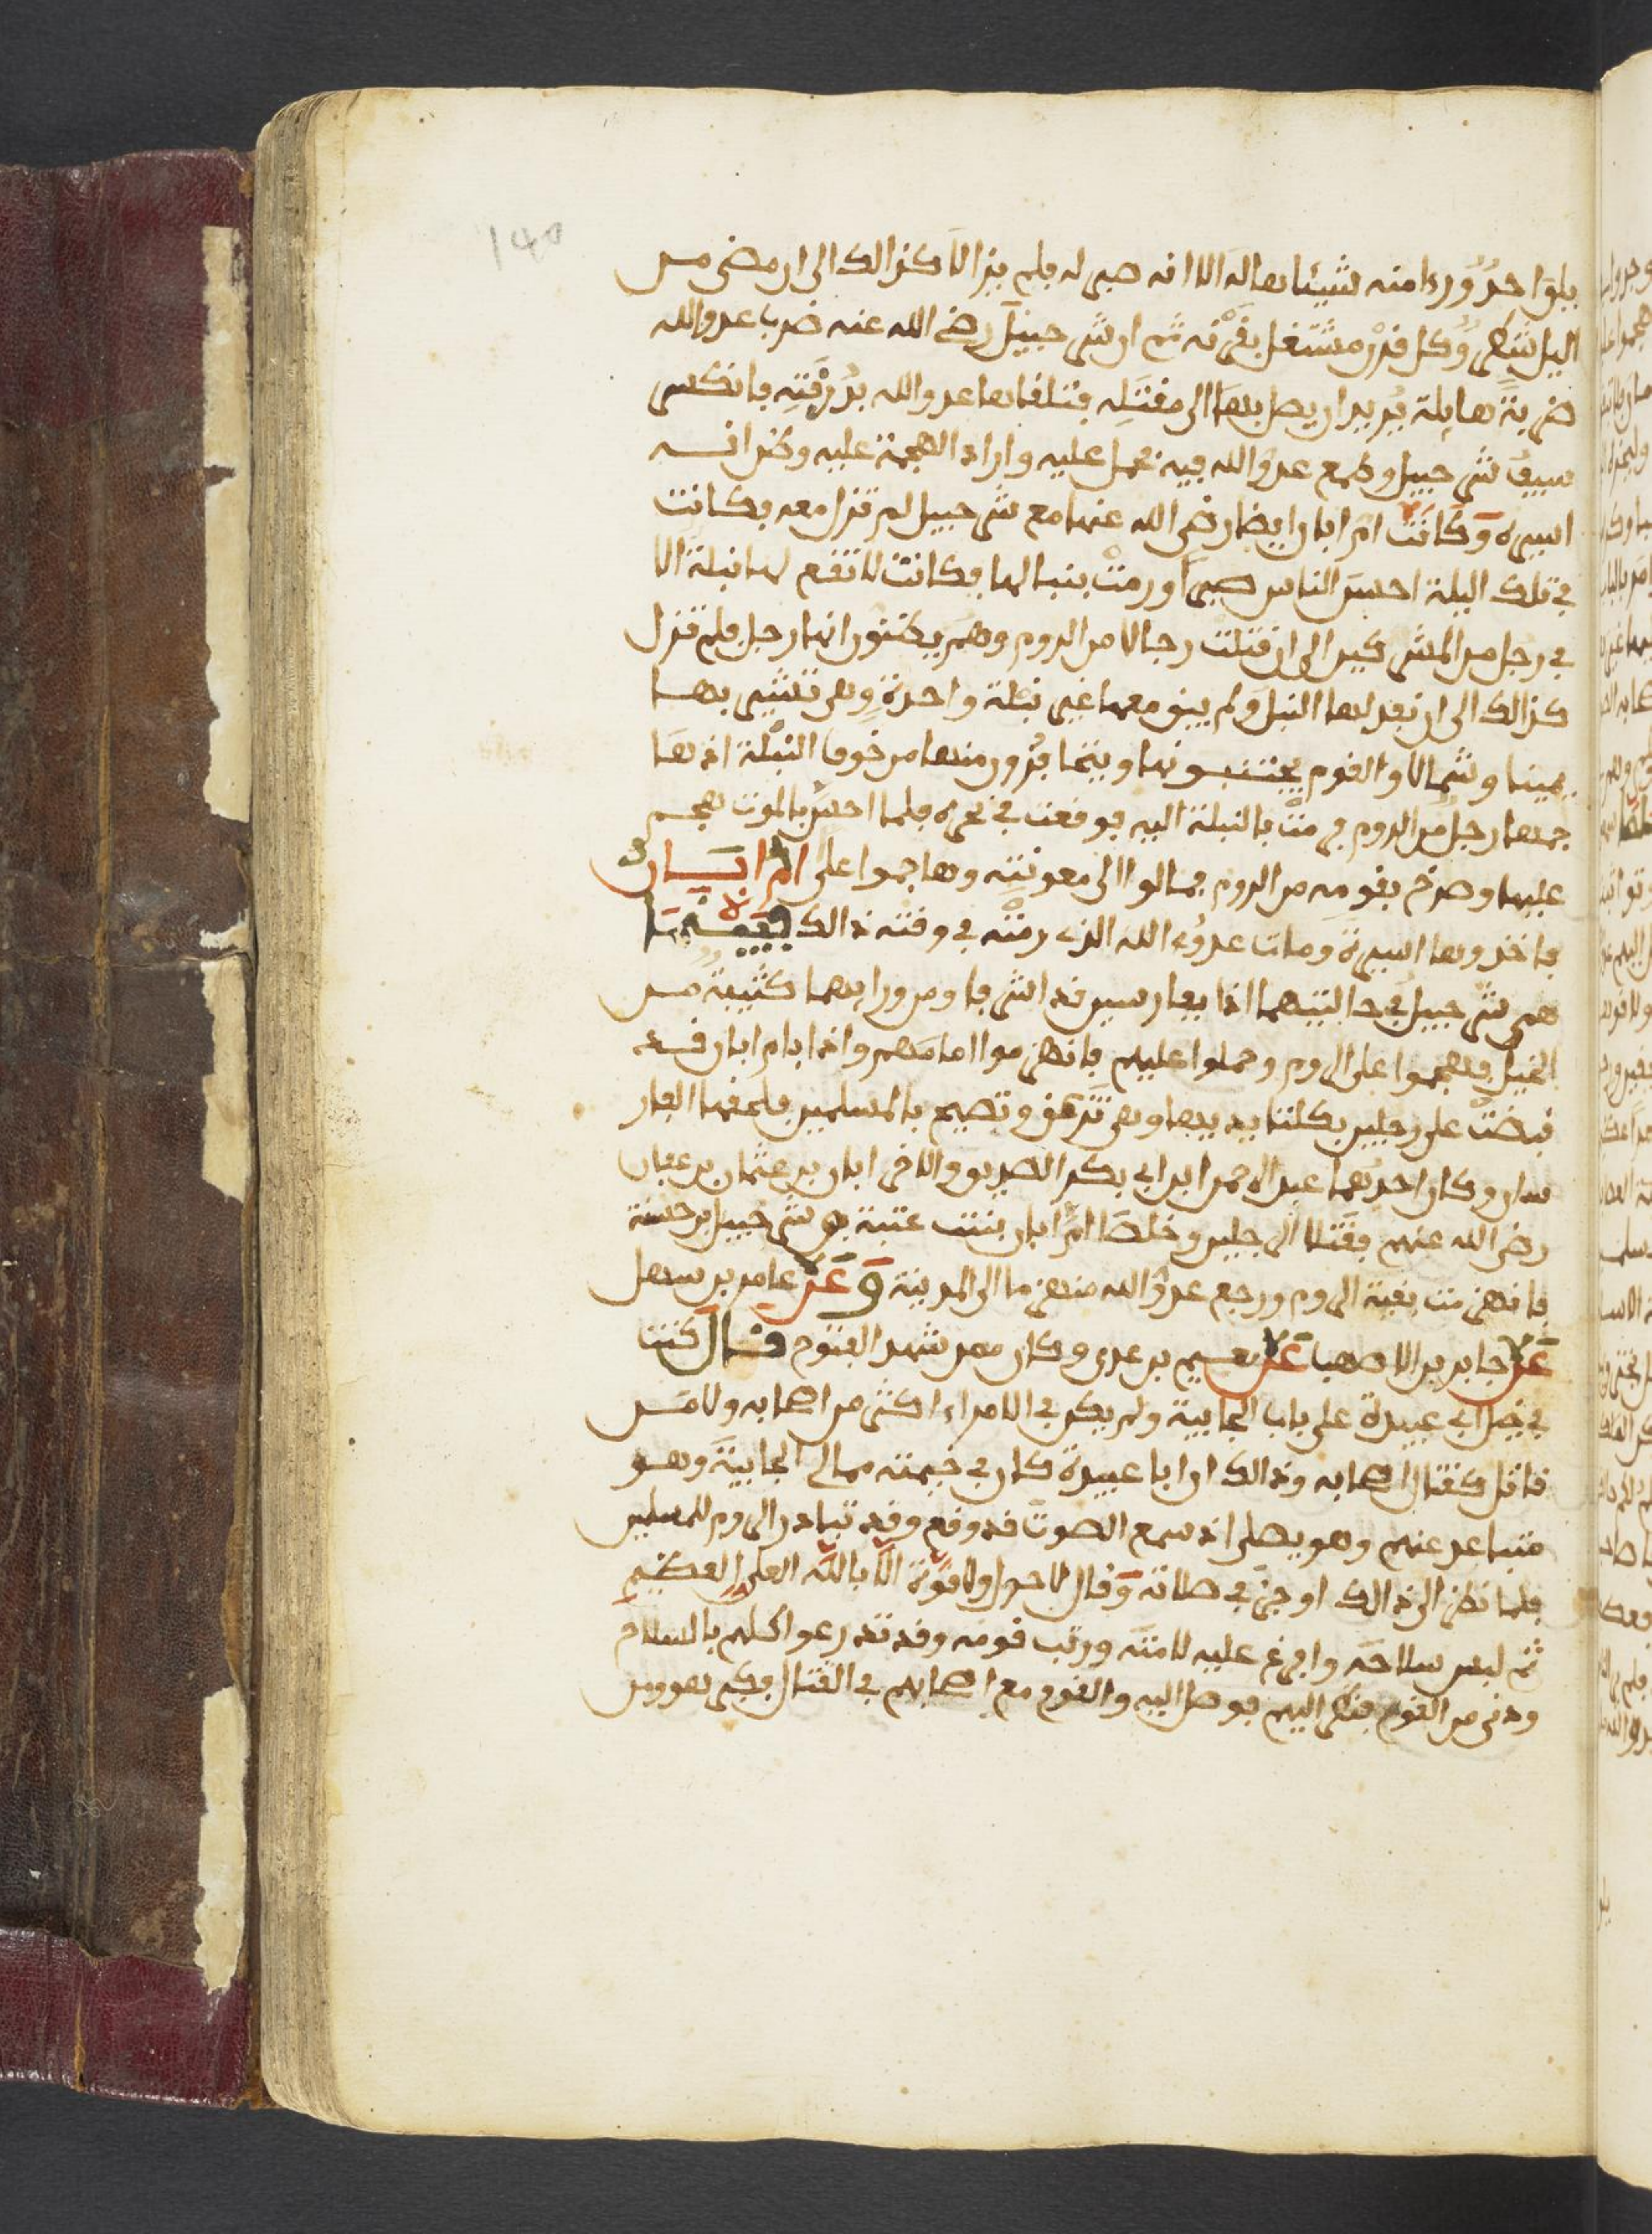 140
يلق احد وردا منه شيئا هاله الا انه صبر له فلم يزالا كذالك الى ان مضى من
اليل شطر وكل قرن مشتغل بقرنه ثم ان شرحبيل رضي الله عنه ضرب عدو الله
ضربة هايلة يريد ان يصل بها الى مقتله فتلقاها عدو الله بدرقته فانكسر
سيف شرحبيل وطمع عدو الله فيه فحمل عليه واراد الهجمة عليه وظن انه
اسيره وكانت ام ابان ايضا رضي الله عنها مع شرحبيل لم تزل معه فكانت
في تلك اليلة احسن الناس صبرا ورمت بنبالها فكانت لا تقع لها نبلة الا
في رجل من المشركين الى ان قتلت رجالا من الروم وهم يظنون انها رجل فلم تزل
كذالك الى ان نفد لها النبل ولم يبق معها غير نبلة واحدة وهي تشير بها
يمينا وشمالا والقوم يجتنبونها ويتفرقون منها من خوف النبلة اذ هم
جمها رجل من الروم فرمت بالنبلة اليه فوقعت في نحره فلما احس بالموت هجم
عليها وصرخ بقومه من الروم فمالوا الى معونته وهاجموا على ام ابان
فاخذوها اسيرة ومات عدو الله الذي رمته في وقته ذالك
هم شرحبيل في حالتهما اذا بفارسين قد اشرفا ومن ورايهما كتيبة من
الخيل فهجموا على الروم وحملوا عليهم فانهزموا امامهم واذا بام ابان قد
قبضت على رجلين بكلتا يديها وهي تزعق وتصيح بالمسلمين فلحقها الفار
سان وكان احدهما عبد الرحمن ابن ابي بكر الصديق والاخر ابان بن عثمان بن عفان
رضي الله عنهم فقتلا الرجلين وخلصا ام ابان بنت عتبة وشرحبيل بن حسنة
فانهزمت بقية الروم ورجع عدو الله منهزما الى المدينة وعن عامر بن سهل
عن جابر بن الاصهب عن نعيم بن عدي وكان ممن شهد الفتوح قال كنت
في خيل ابي عبيدة على باب الجابية ولم يكن في الامراء اكثر من اصحابه ولا من
قاتل كقتال اصحابه وذالك ان ابا عبيدة كان في خيمته ممالي الجابية وهو
متباعد عنهم وهو يصلي اذ سمع الصوت قد وقع وقد تبادر الروم للمسلمين
فلما نظر الى ذالك اوجز في صلاته وقال لا حول ولا قوة الا بالله العلي العظيم
ثم لبس سلاحه وافرغ عليه لامته ورتب قومه وقد تدرعوا كلهم بالسلاح
ودنى من القوم فنظر اليهم فوصل اليه والقوم مع اصحابهم في القتال فكبر هو ومن